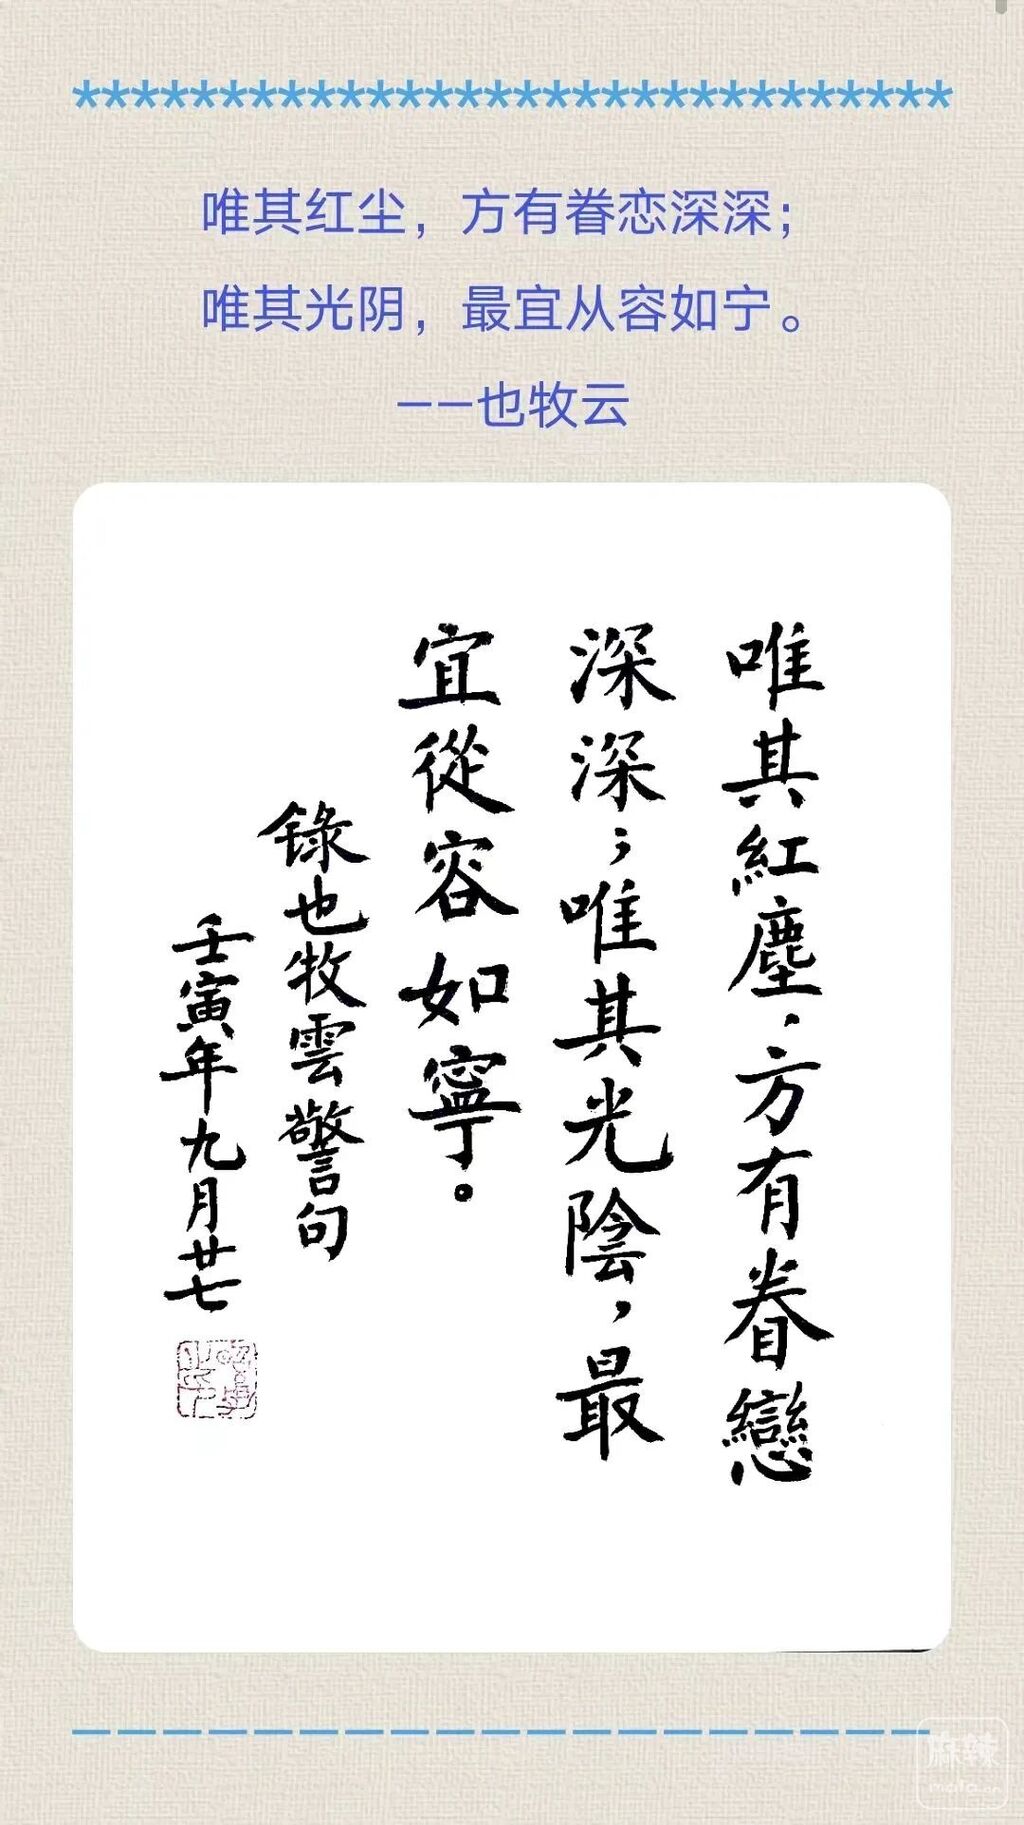 *******************************
唯其红尘，方有眷恋深深；
唯其光阴，最宜从容如宁。
——也牧云
唯其紅塵，方有眷戀
深深；唯其光陰，最
宜從容如寧。
錄也牧雲警句
壬寅年九月廿七
麻辣
mala.cn